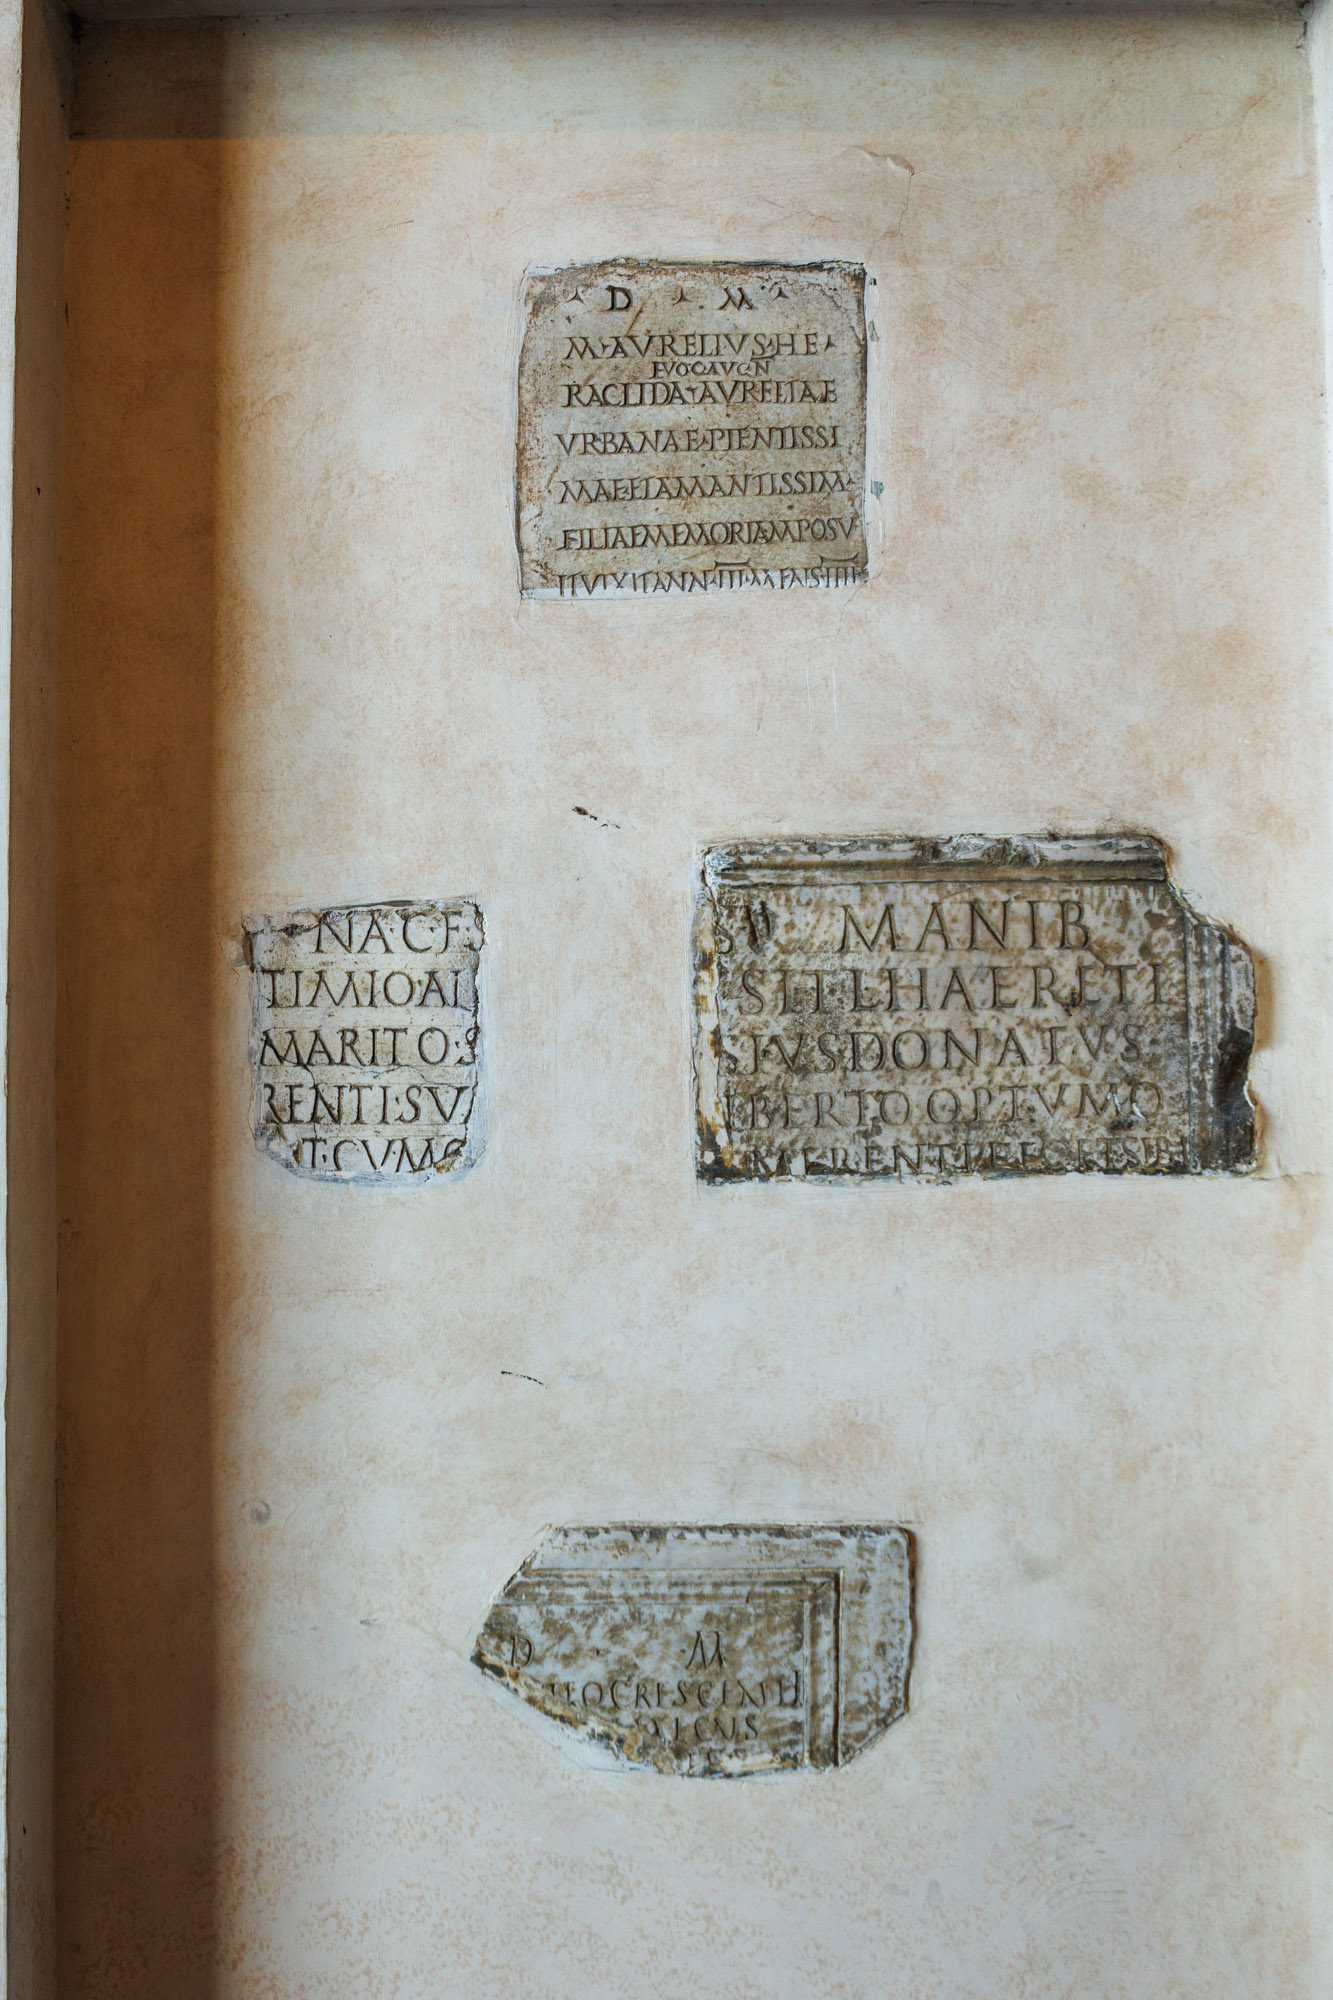 D M
M AVRELIVS HE
EVOC AVG N
RACLIDA AVRELIAE
VRBANAE PIENTISSI
MAE ET AMANTISSIM
FILIAE MEMORIAM POSV
IT VIXIT ANN III M
NA·C·F·
TIMIO·AL
MARITO·S
RENTI·SV
T·CVM
MANIB
SIT·L HAERETI
SIVS DONATVS
BERTO OPTVMO
MERENTI FEC ET SIBI
D M
CRESCENTI
ICVS